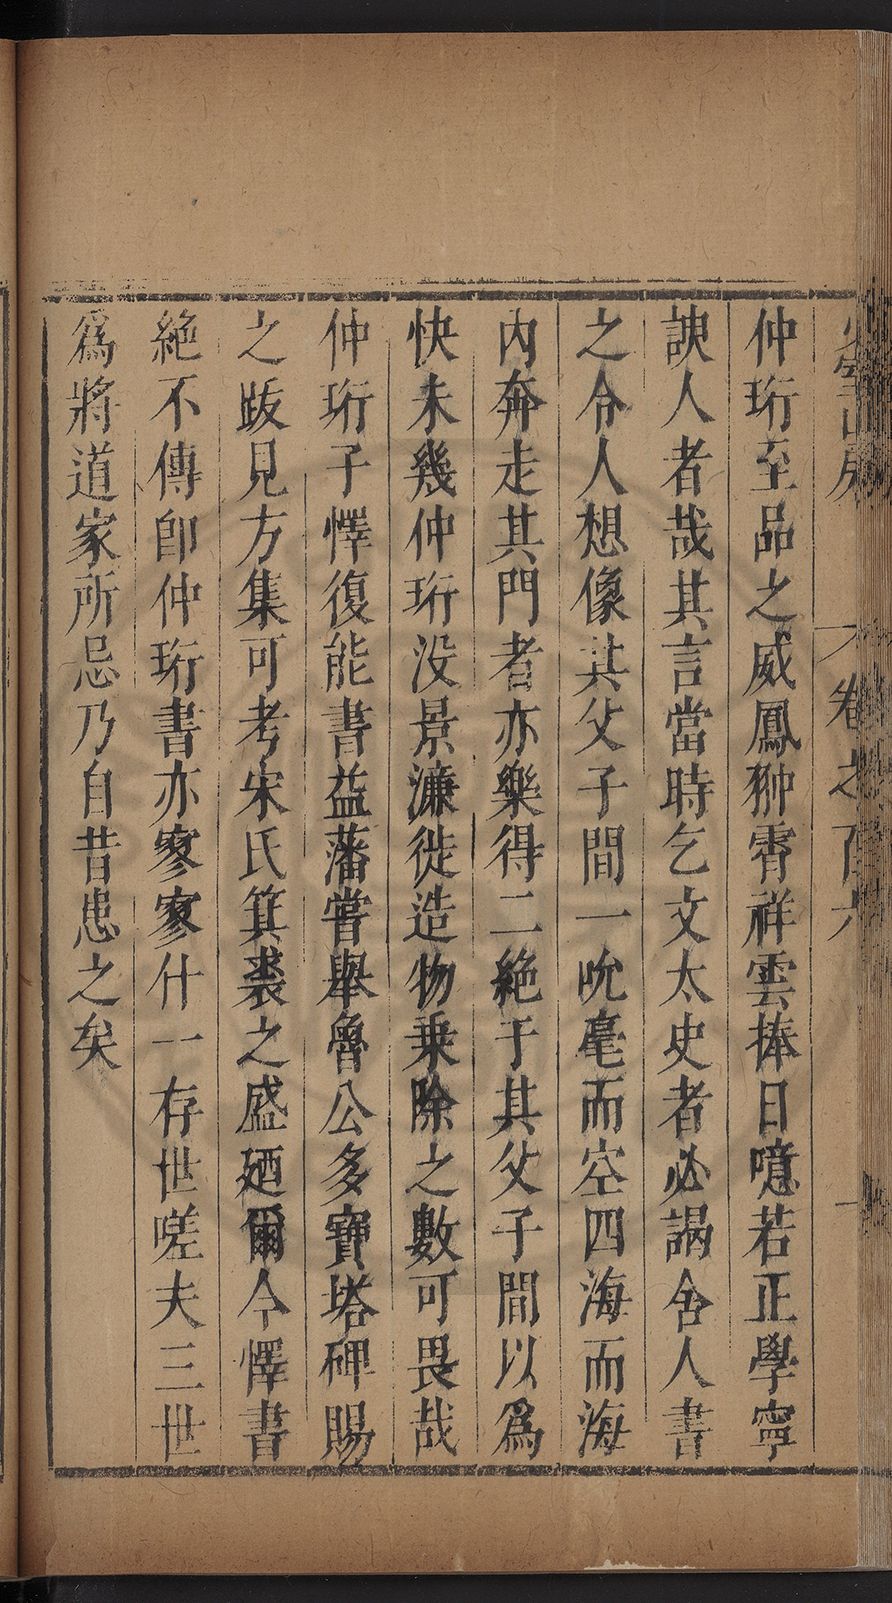 卷之百六
仲珩至品之威鳳翀霄祥雲捧日噫若正學寧
諛人者哉其言當時乞文太史者必謁舍人書
之令人想像其父子間一吮毫而空四海而海
內奔走其門者亦樂得二絶于其父子間以爲
快未幾仲珩没景濂徙造物乗除之數可畏哉
仲珩子懌復能書益藩嘗舉魯公多寶塔碑賜
之跋見方集可考宋氏箕裘之盛廼爾今懌書
絶不傳卽仲珩書亦寥寥什一存世嗟夫三世
爲將道家所忌乃自昔患之矣